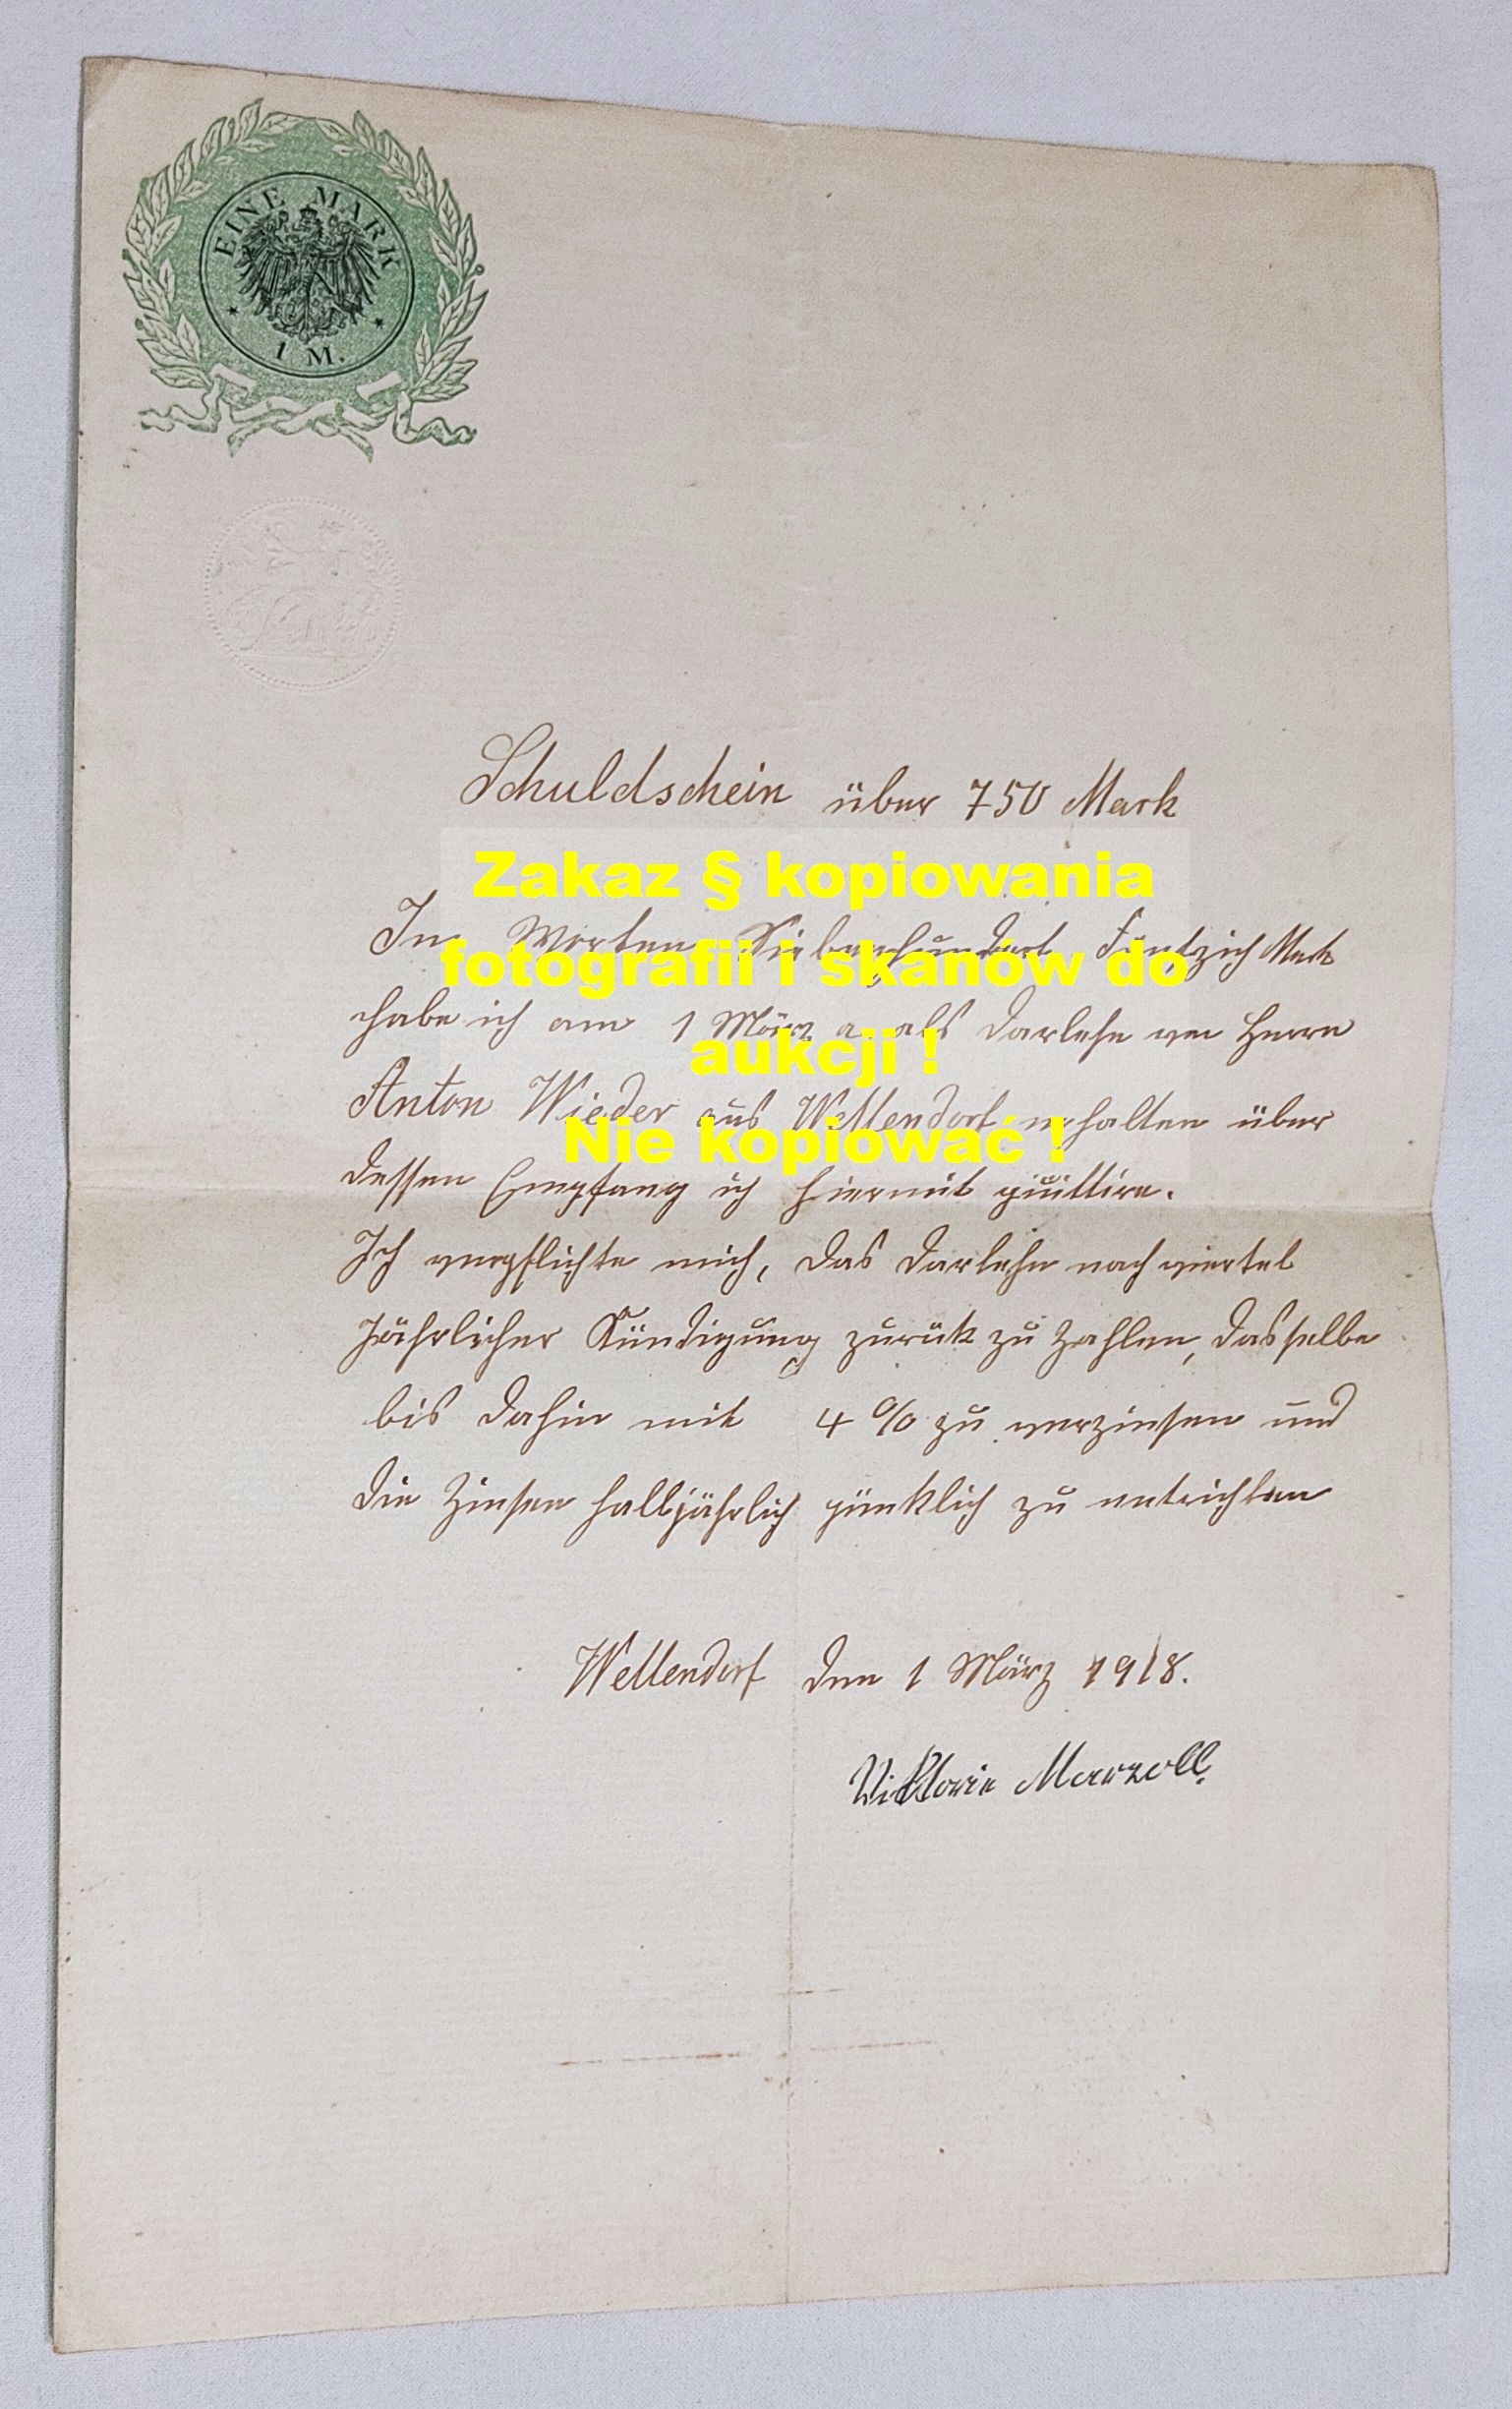 EINE MARK
1 M.
Schuldschein über 750 Mark
Zakaz § kopiowania
In Worten Siebenhundert Fünfzich Mark
fotografii i skanów do
habe ich am 1 März a. als Darlehn von Herrn
aukcji !
Anton Wieder aus Wellendorf erhalten über
Nie kopiować !
dessen Empfang ich hiermit quittire.
Ich verpflichte mich, das Darlehn nach viertel
jährlicher Kündigung zurük zu zahlen, dasselbe
bis dahin mit 4 % zu verzinsen und
die Zinsen halbjährlich pünklich zu entrichten
Wellendorf den 1 März 1918.
Viktoria Marzoll.